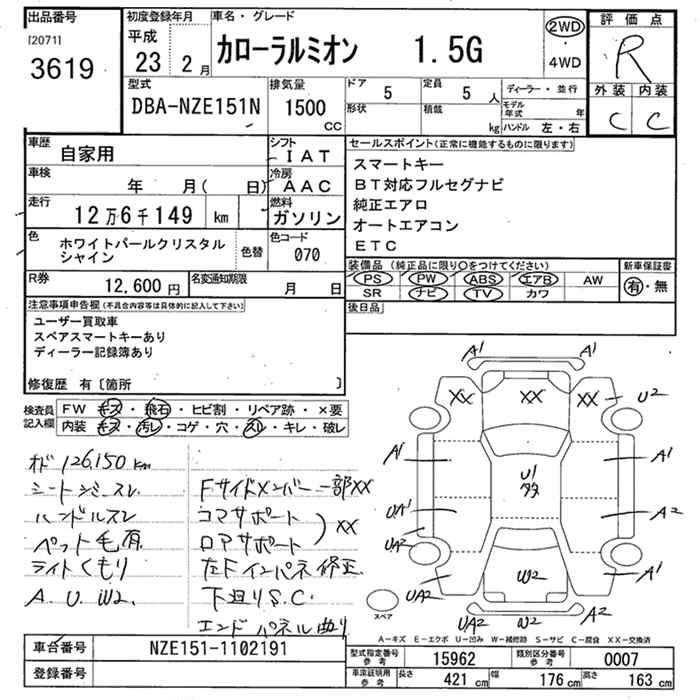 出品番号
[2071]
3619
初度登録年月
平成
23 2月
車名・グレード
カローラルミオン 1.5G
2WD
・
4WD
評価点
R
外装 内装
C C
型式
DBA-NZE151N
排気量
1500
CC
ドア
5
定員
5 人
形状
積載
kg
ディーラー・並行
モデル年式 年
ハンドル 左・右
車歴
自家用
シフト
IAT
車検
年 月( 日)
冷房
AAC
走行
12万6千149 km
燃料
ガソリン
色
ホワイトパールクリスタル
シャイン
色替
色コード
070
R券
12,600円
名変通知期限
月 日
セールスポイント(正常に機能するものに限ります)
スマートキー
BT対応フルセグナビ
純正エアロ
オートエアコン
ETC
装備品 (純正品に限り○をつけてください)
PS PW ABS エアB AW
SR ナビ TV カワ
新車保証書
有・無
後日品
注意事項申告欄(不具合内容等は具体的に記入して下さい)
ユーザー買取車
スペアスマートキーあり
ディーラー記録簿あり
修復歴 有〔箇所 〕
検査員
記入欄
FW キズ・飛石・ヒビ割・リペア跡・×要
内装 キズ・汚レ・コゲ・穴・スレ・キレ・破レ
オド 126,150 km
シートシミ・スレ
ハンドルスレ
ペット毛有
ライトくもり
A.U.W2.
Fサイドメンバー一部XX
コアサポート
ロアサポート
) XX
左Fインパネ修正
下廻りS.C.
エンドパネル曲り
A1 A1
XX XX XX U2
A1 A1
U1
UA1 A2
UA2
A1
W2
UA2
UA2 W2 A2
スペア
A−キズ E−エクボ U−凹み W−補修跡 S−サビ C−腐食 XX−交換済
車台番号
NZE151-1102191
登録番号
型式指定番号
参考
15962
類別区分番号
参考
0007
車庫証明用
参考
長さ
421 cm
幅
176 cm
高さ
163 cm